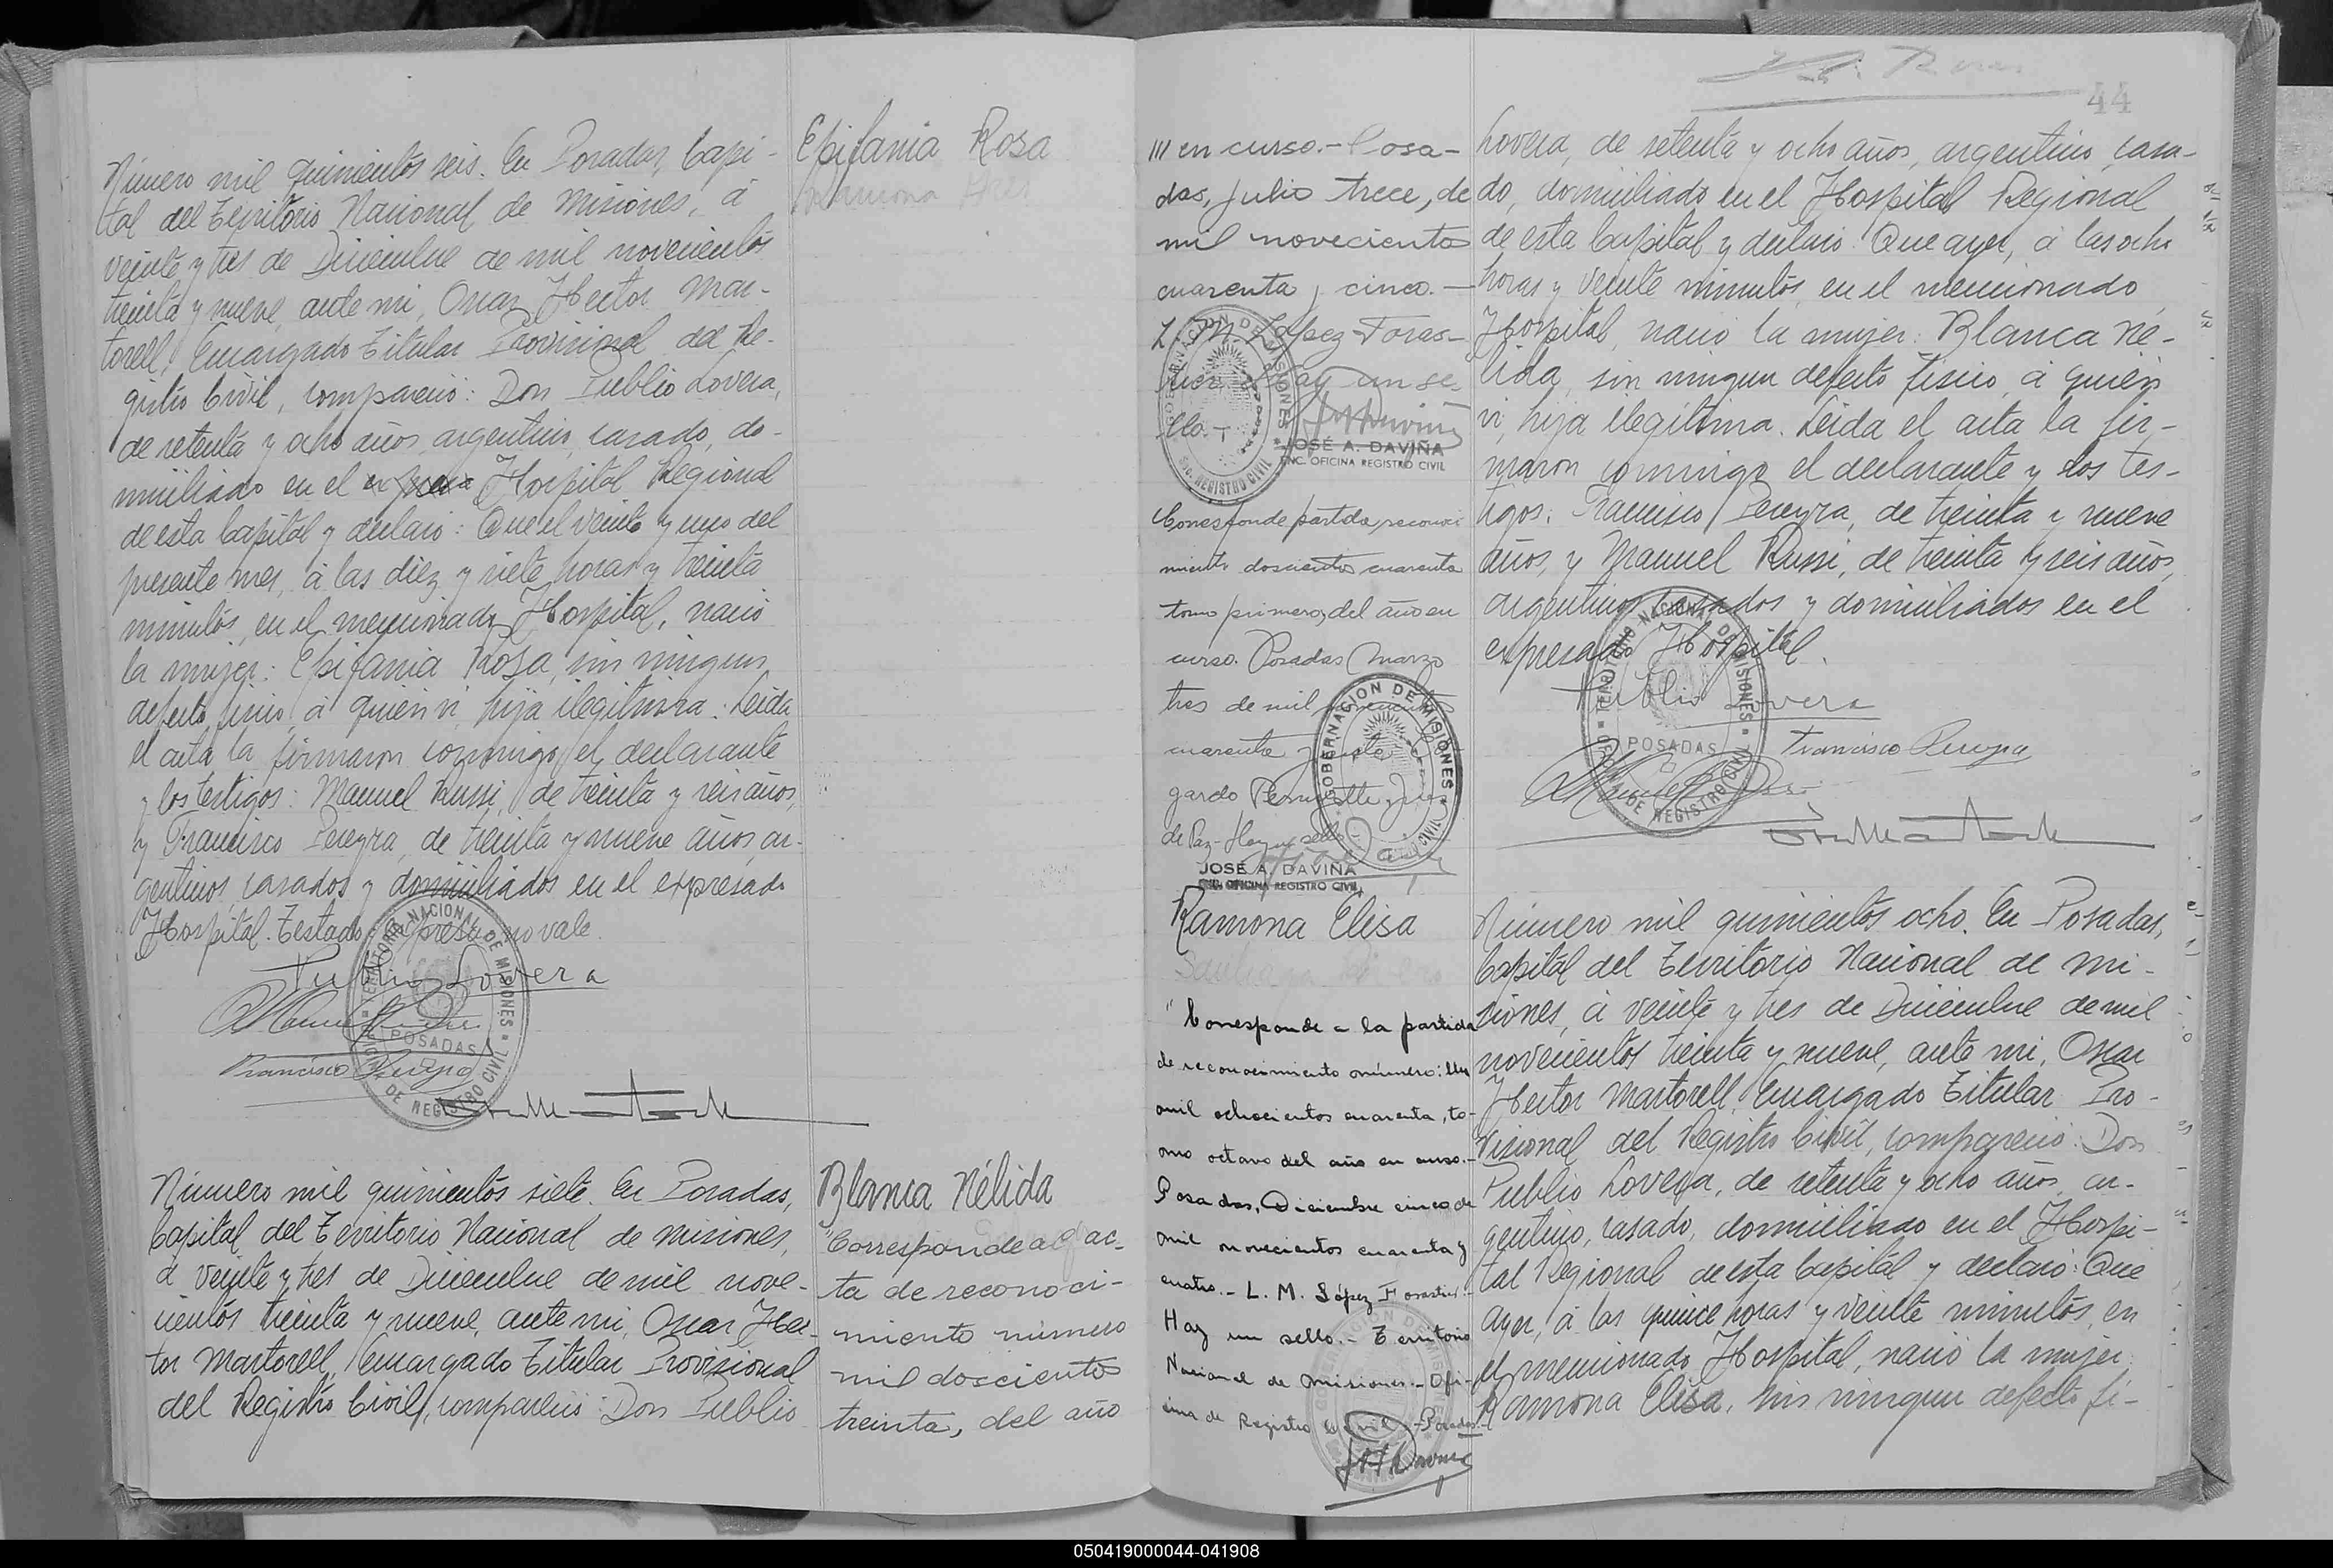 Número mil quinientos seis. En Posadas, Capi-
tal del Territorio Nacional de Misiones, á
veinte y tres de Diciembre de mil novecientos
treinta y nueve, ante mi, Oscar Hector Mar-
torell, Encargado Titular Provisional del Re-
gistro Civil, compareció: Don Publio Lovera,
de setenta y ocho años, argentino, casado, do-
miciliado en el Hospital Regional
de esta Capital y declaró: Que el veinte y uno del
presente mes, á las diez y siete horas y treinta
minutos, en el mencionado Hospital, nació
la mujer: Epifania Rosa, sin ningun
defecto fisico, á quien vi, hija ilegitima. Leida
el acta la firmaron conmigo, el declarante
y los testigos: Manuel Russi, de treinta y seis años,
y Francisco Pereyra, de treinta y nueve años, ar-
gentinos, casados y domiciliados en el expresado
Hospital. Testado: expresa no vale.
Publio Lovera
Francisco Pereyra
TERRITORIO NACIONAL DE MISIONES
POSADAS
DE REGISTRO CIVIL
Epifania Rosa
Ramona
Número mil quinientos siete. En Posadas,
Capital del Territorio Nacional de Misiones,
á veinte y tres de Diciembre de mil nove-
cientos treinta y nueve, ante mi, Oscar Hec-
tor Martorell, Encargado Titular Provisional
del Registro Civil, compareció: Don Publio
Blanca Nélida
"Corresponde al ac-
ta de reconoci-
miento número
mil doscientos
treinta, del año
III en curso.- Posa-
das, Julio trece, de
mil novecientos
cuarenta y cinco.-
L. M. López Foras-
tier. Hay un se-
llo.-
GOBERNACION DE MISIONES
REGISTRO CIVIL
JOSÉ A. DAVIÑA
ENC. OFICINA REGISTRO CIVIL
Corresponde partida reconoci
miento doscientos cuarenta
tomo primero, del año en
curso. Posadas Marzo
tres de mil novecientos
cuarenta y
gardo
de Paz- Hay un sello
GOBERNACION DE MISIONES
JOSÉ A. DAVIÑA
ENC. OFICINA REGISTRO CIVIL
Ramona Elisa
"Corresponde a la partida
de reconocimiento número: Un
mil ochocientos cuarenta, to-
mo octavo del año en curso.-
Posadas, Diciembre cinco de
mil novecientos cuarenta y
cuatro.- L. M. López Forastier.-
Hay un sello.- Territorio
Nacional de Misiones.- Ofi-
cina de Registro Civil -Posadas-
44
Lovera, de setenta y ocho años, argentino, casa-
do, domiciliado en el Hospital Regional
de esta Capital y declaró: Que ayer, á las ocho
horas y veinte minutos, en el mencionado
Hospital, nació la mujer: Blanca Né-
lida, sin ningun defecto fisico, á quien
vi, hija ilegitima. Leida el acta la fir-
maron conmigo el declarante y los tes-
tigos: Francisco Pereyra, de treinta y nueve
años, y Manuel Russi, de treinta y seis años,
argentinos, casados y domiciliados en el
expresado Hospital.
Publio Lovera
Francisco Pereyra
TERRITORIO NACIONAL DE MISIONES
POSADAS
DE REGISTRO CIVIL
Número mil quinientos ocho. En Posadas,
Capital del Territorio Nacional de Mi-
siones, á veinte y tres de Diciembre de mil
novecientos treinta y nueve, ante mi, Oscar
Hector Martorell, Encargado Titular Pro-
visional del Registro Civil, compareció: Don
Publio Lovera, de setenta y ocho años, ar-
gentino, casado, domiciliado en el Hospi-
tal Regional de esta Capital y declaró: Que
ayer, á las quince horas y veinte minutos, en
el mencionado Hospital, nació la mujer:
Ramona Elisa, sin ningun defecto fi-
050419000044-041908